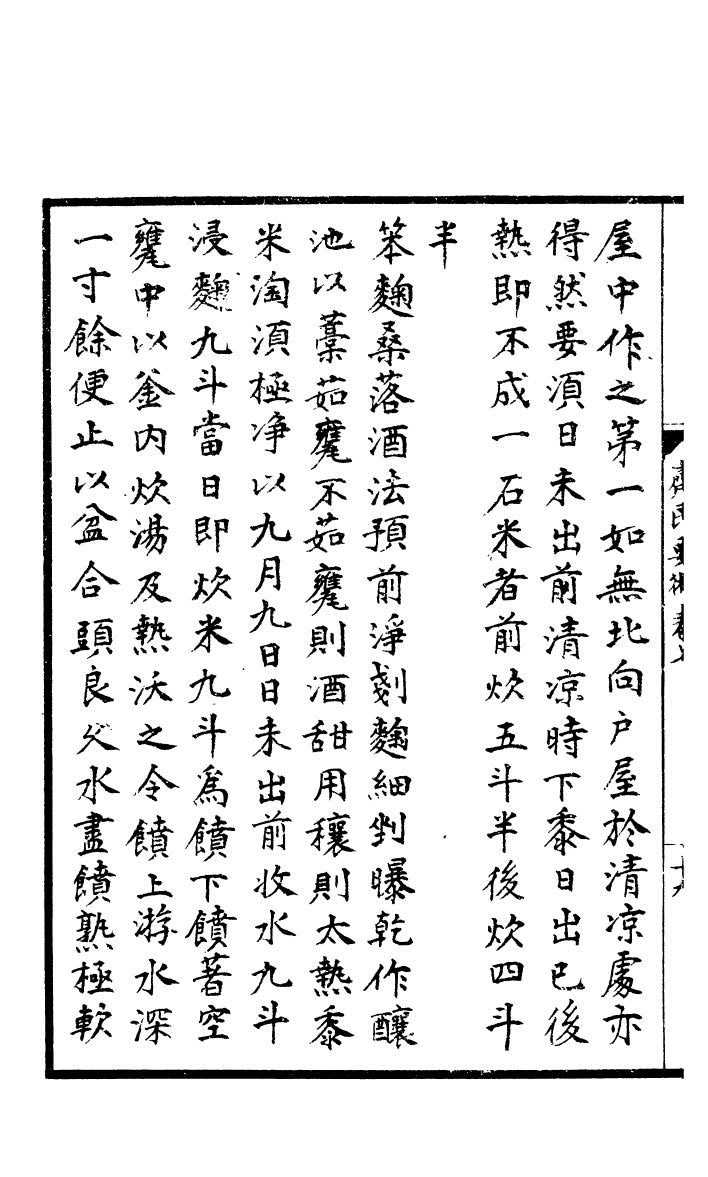 屋中作之第一如無北向户屋於清凉處亦
得然要湏日未出前清凉時下黍日出已後
熱即不成一石米者前炊五斗半後炊四斗
半
笨麴桑落酒法預前淨剗麴細剉曝乾作釀
池以藁茹甕不茹甕則酒甜用穰則太熱黍
米淘湏極净以九月九日日未出前收水九斗
浸麴九斗當日即炊米九斗爲饙下饙著空
甕中以釜内炊湯及熱沃之令饙上游水深
一寸餘便止以盆合頭良久水盡饙熟極軟
齊民要術 卷七